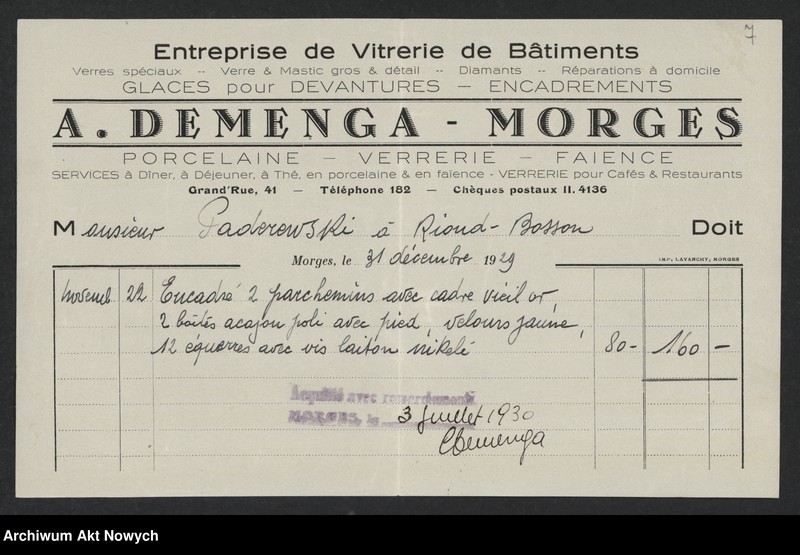 7
Entreprise de Vitrerie de Bâtiments
Verres spéciaux -- Verre & Mastic gros & détail -- Diamants -- Réparations à domicile
GLACES pour DEVANTURES — ENCADREMENTS
A. DEMENGA - MORGES
PORCELAINE — VERRERIE — FAIENCE
SERVICES à Dîner, à Déjeuner, à Thé, en porcelaine & en faïence - VERRERIE pour Cafés & Restaurants
Grand'Rue, 41 — Téléphone 182 — Chèques postaux II. 4136
Monsieur Paderewski à Riond-Bosson Doit
Morges, le 31 décembre 1929
IMP. LAVANCHY, MORGES
novemb 22 Encadré 2 parchemins avec cadre vieil or,
2 boîtes acajou poli avec pied, velours jaune,
12 équerres avec vis laiton nikelé 80- 160 -
Acquitté avec remerciements
MORGES, le 3 juillet 1930
Demenga
Archiwum Akt Nowych